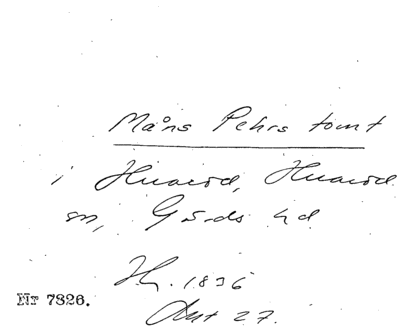 Måns Pehrs tomt
i Huaröd, Huaröd
sn, Gärds hd
H. 1836
Akt 27.
Nr 7826.